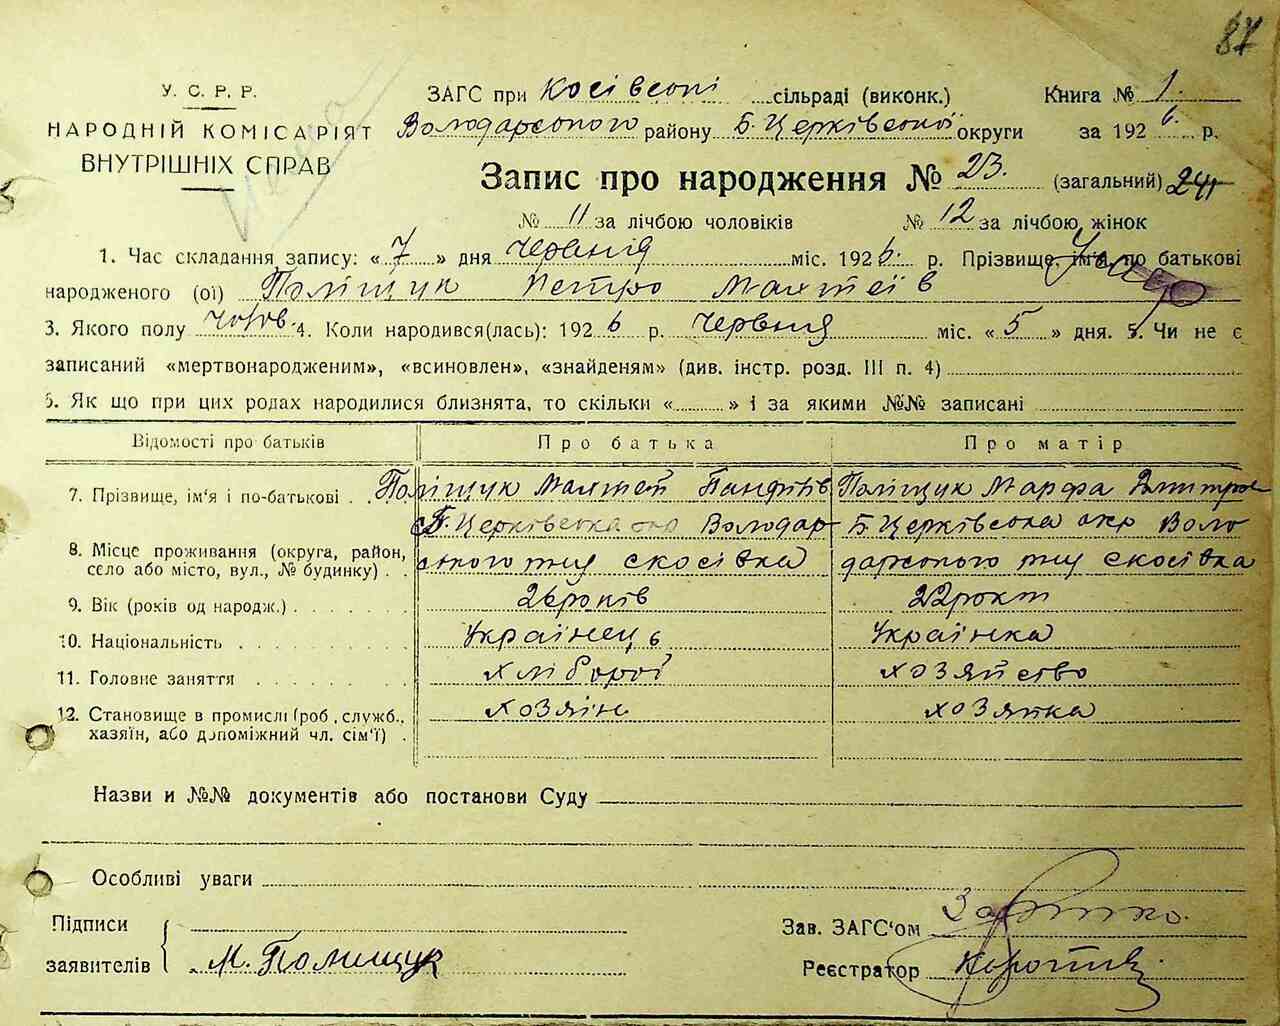 87
У. С. Р. Р.
НАРОДНІЙ КОМІСАРІЯТ
ВНУТРІШНІХ СПРАВ
ЗАГС при Косівскі сільраді (виконк.) Книга № 1.
Володарського району Б. Церківської округи за 1926 р.
Запис про народження № 23. (загальний) 24
№ 11 за лічбою чоловіків № 12 за лічбою жінок
1. Час складання запису: « 7 » дня червнія міс. 1926. р. Прізвище, ім'я, по батькові
народженого (ої) Поліщук Петро Махтеів
3. Якого полу чолов. 4. Коли народився(лась): 1926 р. червнія міс. « 5 » дня. 5. Чи не є
записаний «мертвонародженим», «всиновлен», «знайденям» (див. інстр. розд. III п. 4)
6. Як що при цих родах народилися близнята, то скільки « » і за якими №№ записані
Відомості про батьків Про батька Про матір
7. Прізвище, ім'я і по-батькові . Поліщук Махтей Поліщук Марфа
Б. Церківська окр Володар- Б. Церківська окр Воло
8. Місце проживання (округа, район, село або місто, вул., № будинку) . . ського скосівка дарського скосівка
9. Вік (років од народж.) . . . . . . 26 років 22 рокт
10. Національність . . . . . . . . . . Українець Українка
11. Головне заняття . . . . . . хліборої хозяйство
12. Становище в промислі (роб., служб., хазяїн, або допоміжний чл. сім'ї) . хозяін хозяйка
Назви и №№ документів або постанови Суду
Особливі уваги
Підписи
заявителів М. Полищук
Зав. ЗАГС'ом
Реєстратор